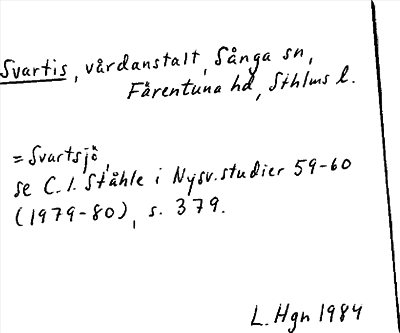 Svartis, vårdanstalt, Sånga sn,
Färentuna hd, Sthlms l.
= Svartsjö,
se C. I. Ståhle i Nysv. studier 59-60
(1979-80), s. 379.
L. Hgn 1984